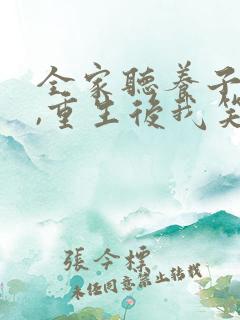 全家聽養子
,重生後我笑
張今標
未經同意禁止轉載